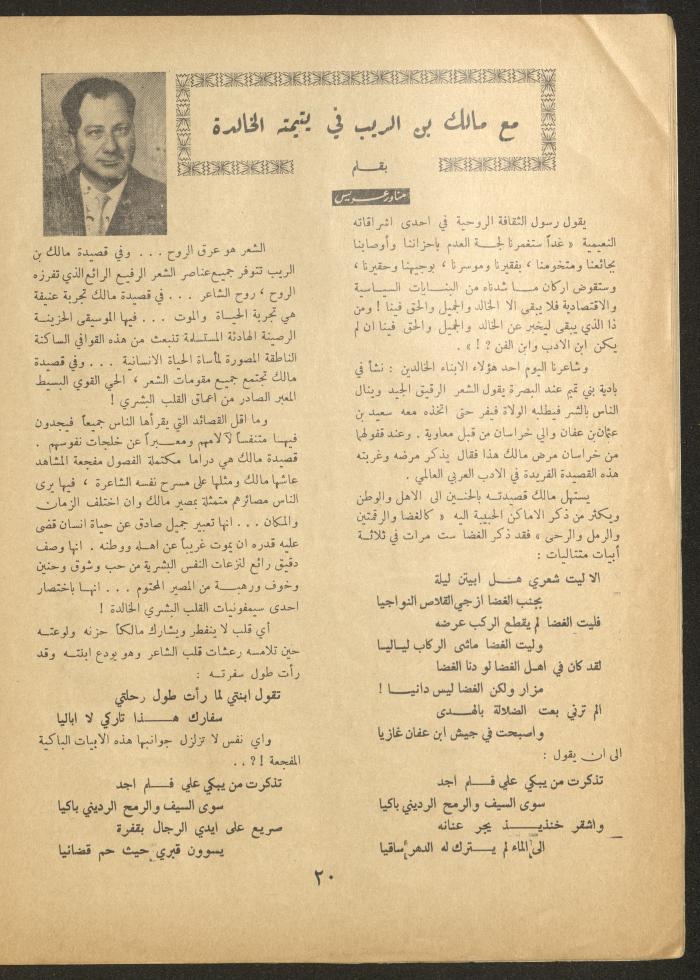 مع مالك بن الريب في يتيمته الخالدة
بقلم
مناور عويس
يقول رسول الثقافة الروحية في احدى اشراقاته
النعيمية « غداً ستغمرنا لجة العدم باحزاننا وأوصابنا
بجائعنا ومتخومنا ، بفقيرنا وموسرنا ، بوجيهنا وحقيرنا ،
وستقوض اركان ما شدناه من البنايات السياسية
والاقتصادية فلا يبقى الا الخالد والجميل والحق فينا ! ومن
ذا الذي يبقى ليخبر عن الخالد والجميل والحق فينا ان لم
يكن ابن الادب وابن الفن ? ! » .
وشاعرنا اليوم احد هؤلاء الابناء الخالدين : نشأ في
بادية بني تميم عند البصرة يقول الشعر الرقيق الجيد وينال
الناس بالشر فيطلبه الولاة فيفر حتى اتخذه معه سعيد بن
عثمان بن عفان والي خراسان من قبل معاوية . وعند قفولها
من خراسان مرض مالك هذا فقال يذكر مرضه وغربته
هذه القصيدة الفريدة في الادب العربي العالمي .
يستهل مالك قصيدته بالحنين الى الاهل والوطن
ويكثر من ذكر الاماكن الحبيبة اليه « كالغضا والرقمتين
والرمل والرحى » فقد ذكر الغضا ست مرات في ثلاثة
أبيات متتاليات :
الا ليت شعري هل ابيتن ليلة
بجنب الغضا ازجي القلاص النواجيا
فليت الغضا لم يقطع الركب عرضه
وليت الغضا ماشى الركاب لياليا
لقد كان في اهل الغضا لو دنا الغضا
مزار ولكن الغضا ليس دانيا !
الم ترني بعت الضلالة بالهدى
واصبحت في جيش ابن عفان غازيا
الى ان يقول :
تذكرت من يبكي علي فلم اجد
سوى السيف والرمح الرديني باكيا
واشقر خنذيذ يجر عنانه
الى الماء لم يترك له الدهر ساقيا
الشعر هو عرق الروح ... وفي قصيدة مالك بن
الريب تتوفر جميع عناصر الشعر الرفيع الرائع الذي تفرزه
الروح ، روح الشاعر ... في قصيدة مالك تجربة عنيفة
هي تجربة الحياة والموت ... فيها الموسيقى الحزينة
الرصينة الهادئة المستسلمة تنبعث من هذه القوافي الساكنة
الناطقة المصورة لمأساة الحياة الانسانية ... وفي قصيدة
مالك تجتمع جميع مقومات الشعر ، الحي القوي البسيط
المعبر الصادر من اعماق القلب البشري !
وما اقل القصائد التي يقرأها الناس جميعاً فيجدون
فيها متنفساً لآلامهم ومعبراً عن خلجات نفوسهم .
قصيدة مالك هي دراما مكتملة الفصول مفجعة المشاهد
عاشها مالك ومثلها على مسرح نفسه الشاعرة ، فيها يرى
الناس مصائرهم متمثلة بمصير مالك وان اختلف الزمان
والمكان ... انها تعبير جميل صادق عن حياة انسان قضى
عليه قدره ان يموت غريباً عن اهله ووطنه . انها وصف
دقيق رائع لنزعات النفس البشرية من حب وشوق وحنين
وخوف ورهبة من المصير المحتوم ... انها باختصار
احدى سيمفونيات القلب البشري الخالدة !
أي قلب لا ينفطر ويشارك مالكاً حزنه ولوعته
حين تلامسه رعشات قلب الشاعر وهو يودع ابنته وقد
رأت طول سفرته :
تقول ابنتي لما رأت طول رحلتي
سفارك هذا تاركي لا اباليا
واي نفس لا تزلزل جوانبها هذه الابيات الباكية
المفجعة !? ..
تذكرت من يبكي علي فلم اجد
سوى السيف والرمح الرديني باكيا
صريع على ايدي الرجال بقفرة
يسوون قبري حيث حم قضائيا
٢٠